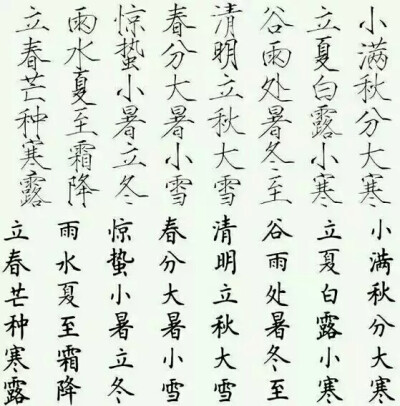 立春芒种寒露
雨水夏至霜降
惊蛰小暑立冬
春分大暑小雪
清明立秋大雪
谷雨处暑冬至
立夏白露小寒
小满秋分大寒
立春芒种寒露
雨水夏至霜降
惊蛰小暑立冬
春分大暑小雪
清明立秋大雪
谷雨处暑冬至
立夏白露小寒
小满秋分大寒